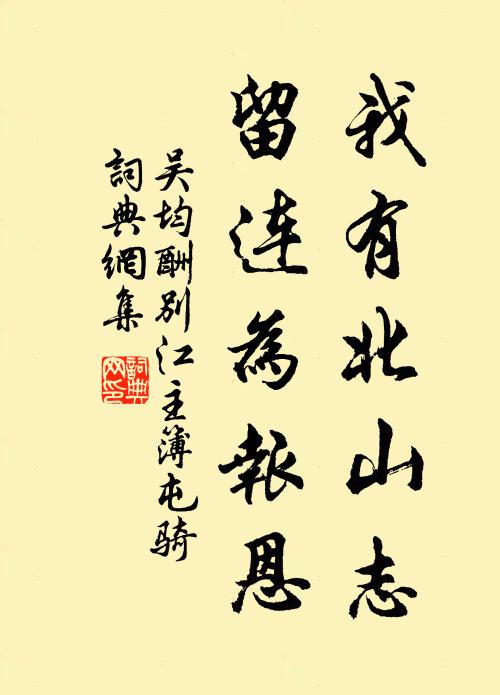 我有北山志
留連為報恩
吴均酬别江主簿屯騎
詞典網集
詞典網印